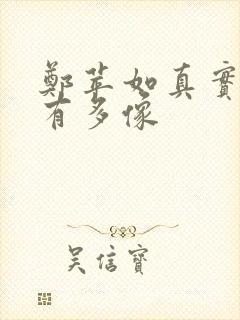 鄭苹如真實
有多像
吳信寶